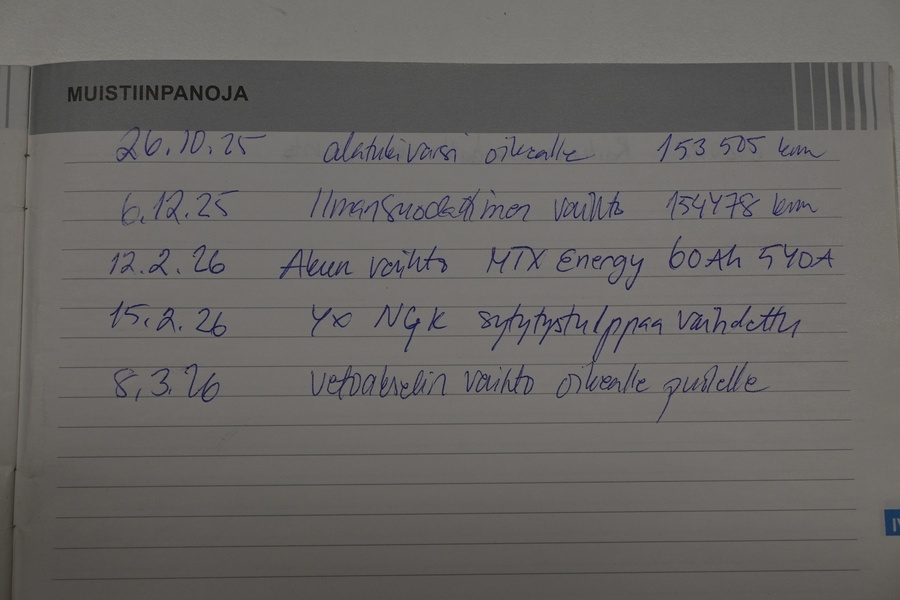 MUISTIINPANOJA
26.10.25 alatukivarsi oikealle 153 505 km
6.12.25 Ilmansuodattimen vaihto 154478 km
12.2.26 Akun vaihto MTX Energy 60Ah 540A
15.2.26 4x NGK sytytystulppaa vaihdettu
8.3.26 vetoakselin vaihto oikealle puolelle